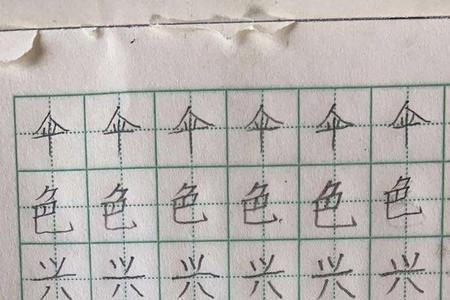 伞伞伞伞伞伞
色色色色色色
兴兴兴兴兴兴